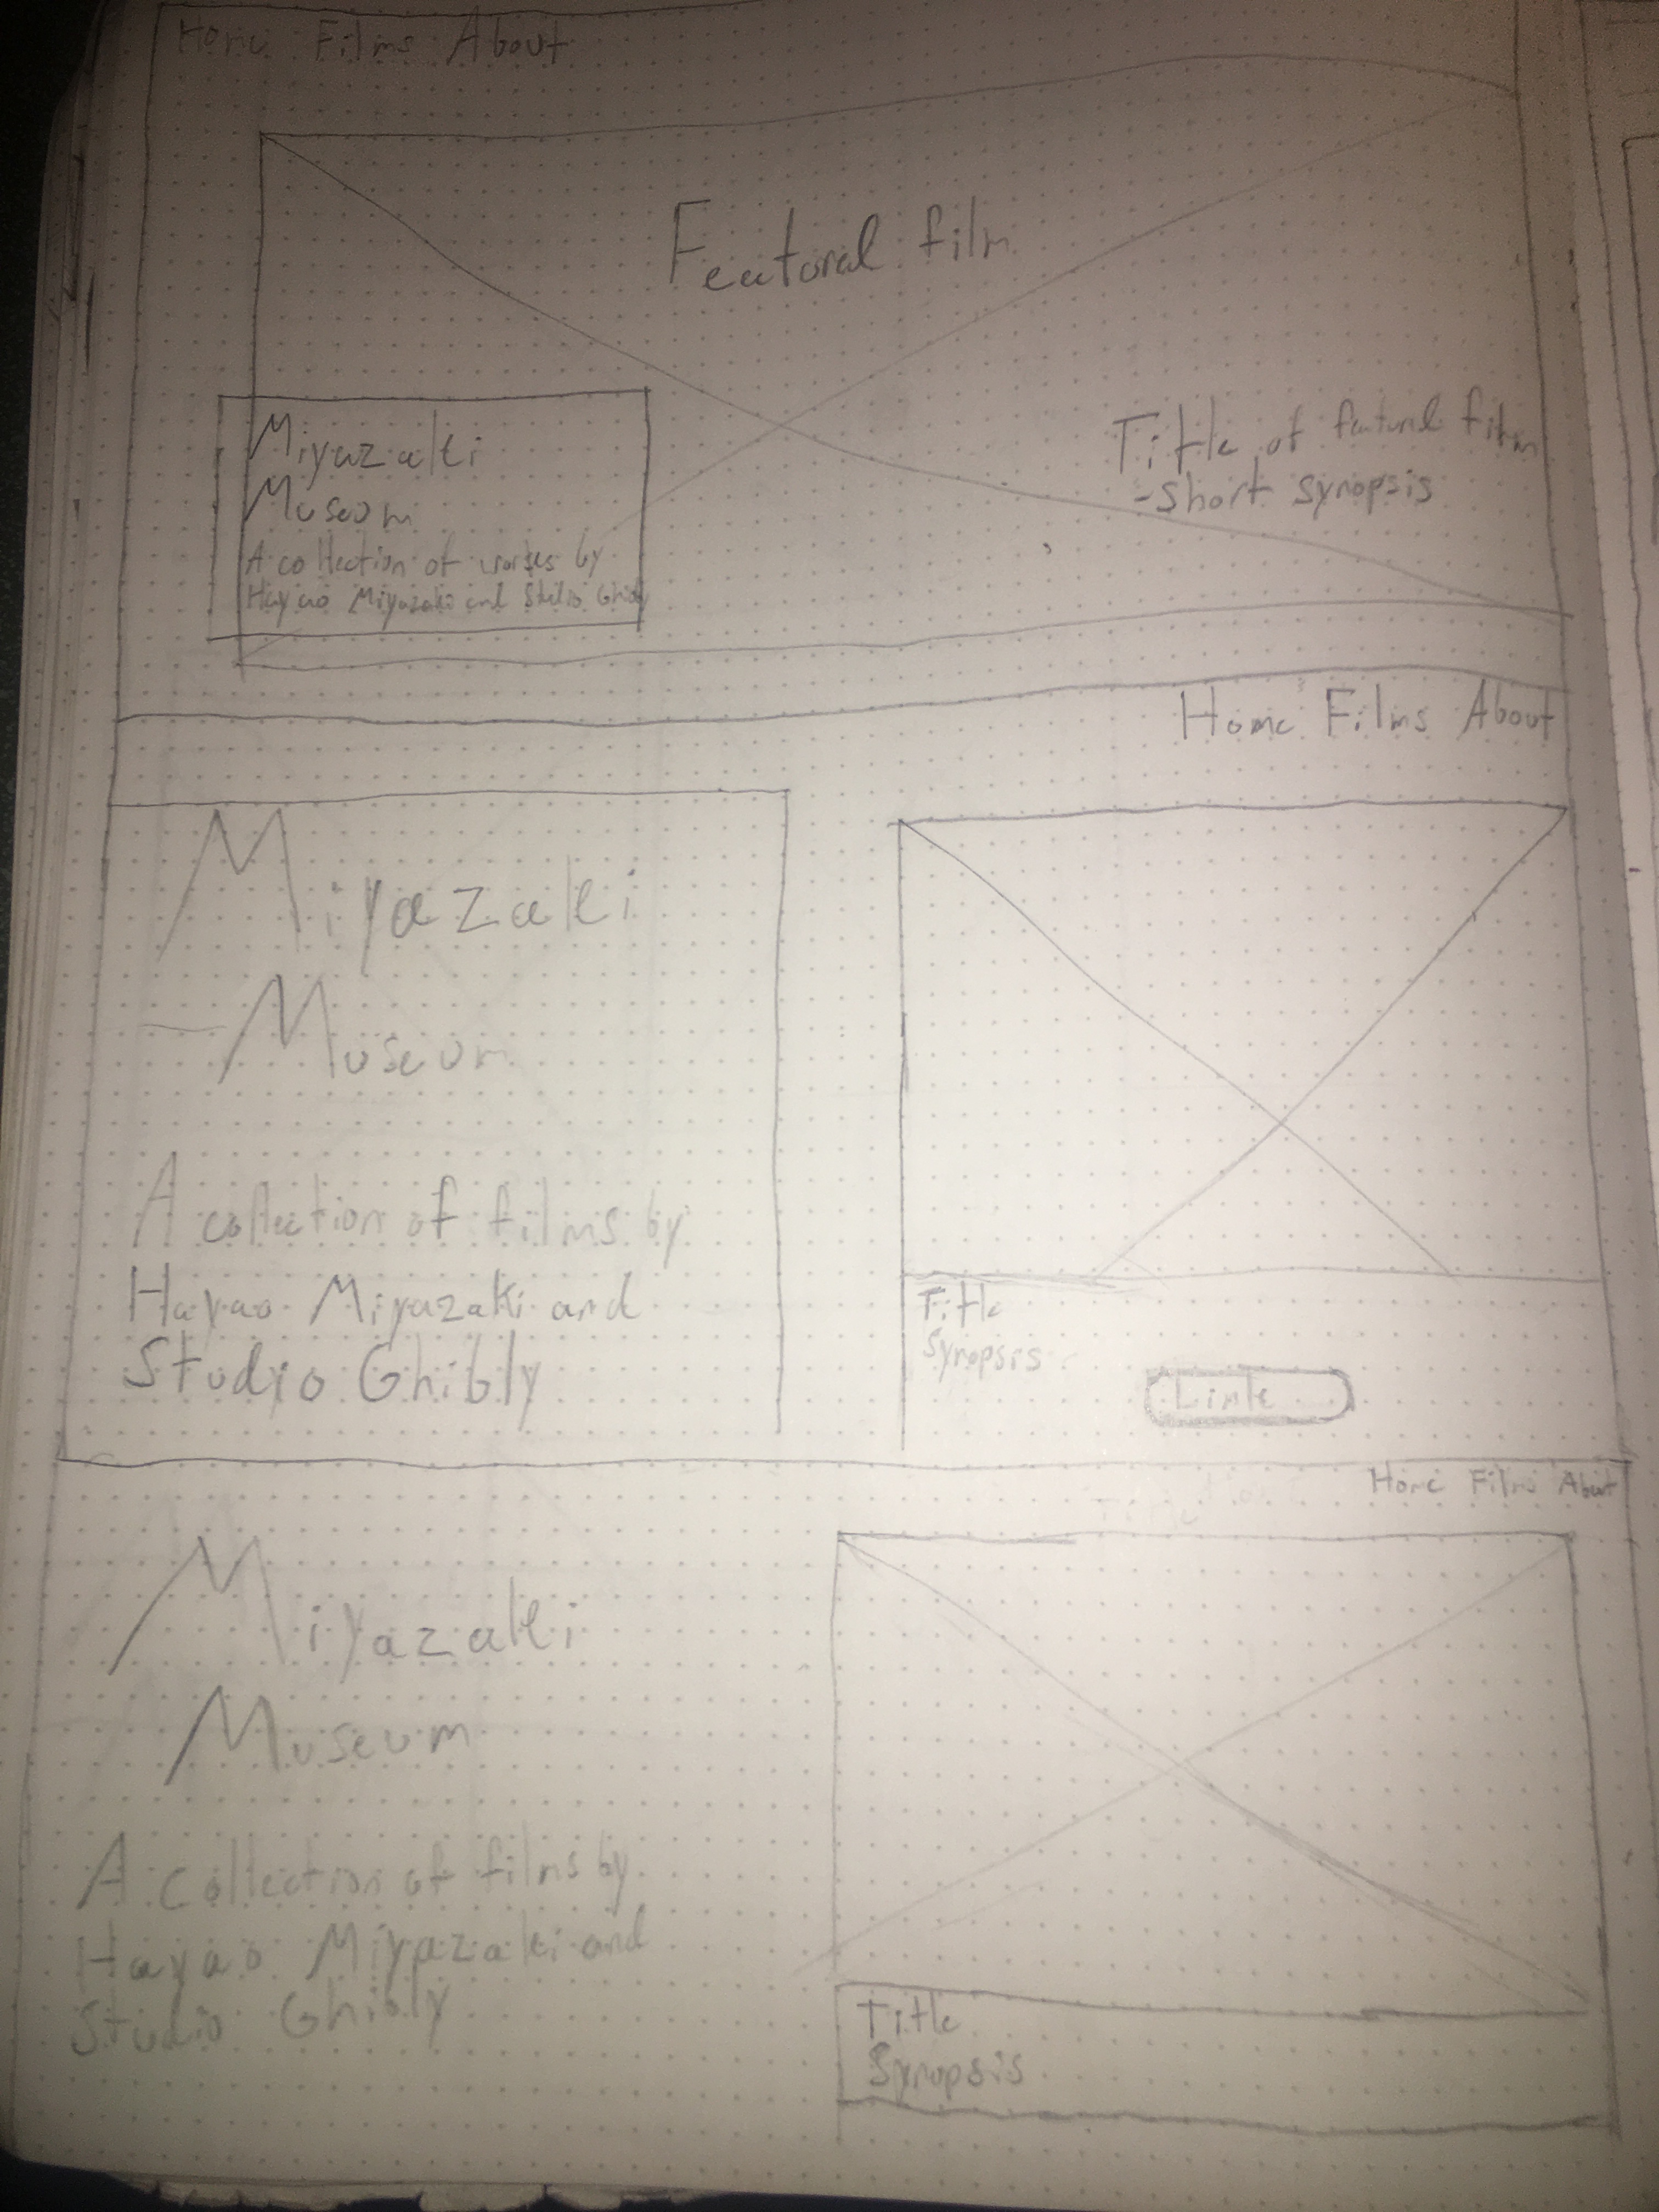 Home Films About
Featured film
Miyazaki
Museum
A collection of works by
Hayao Miyazaki and Studio Ghibly
Title of featured film
-short synopsis
Home Films About
Miyazaki
Museum
A collection of films by
Hayao Miyazaki and
Studio Ghibly
Title
Synopsis
Link
Home Films About
Miyazaki
Museum
A collection of films by
Hayao Miyazaki and
Studio Ghibly
Title
Synopsis